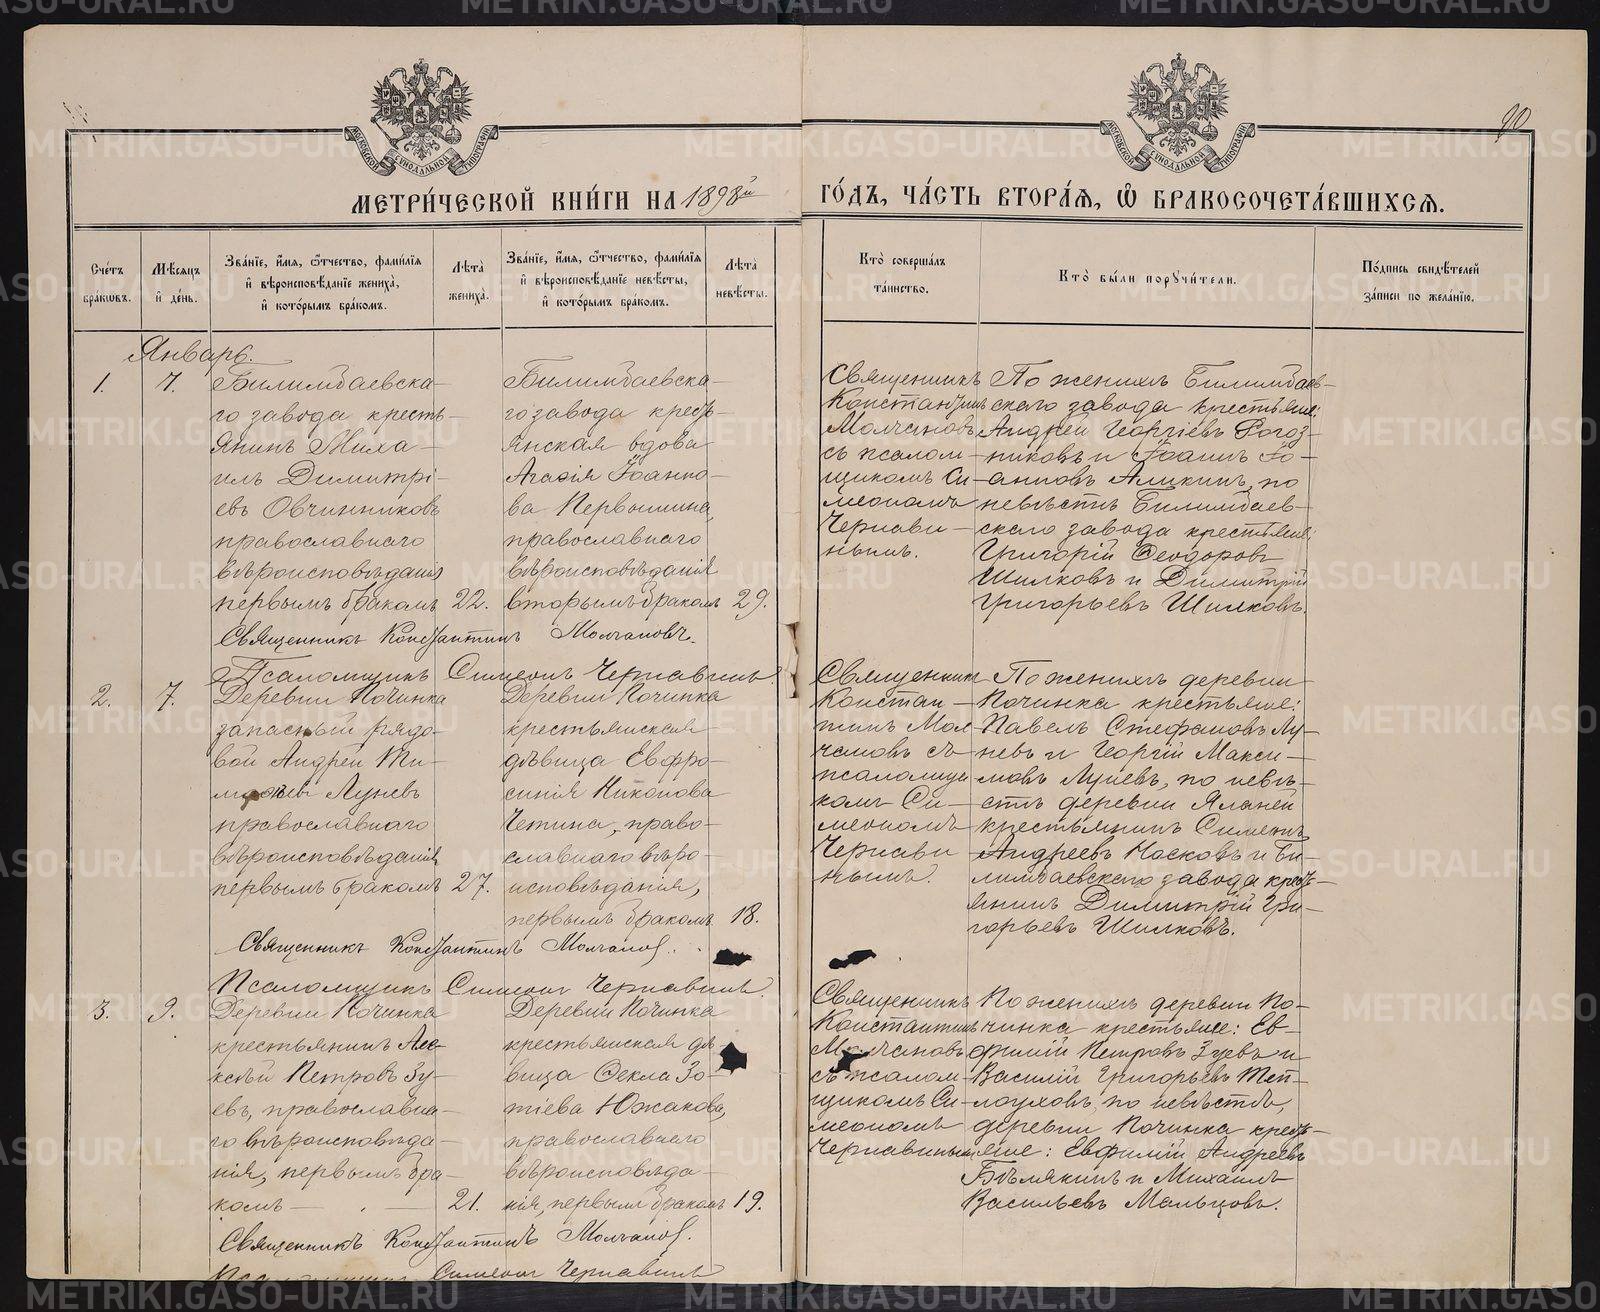 90
МЕТРИ́ЧЕСКОЙ КНИ́ГИ НА 1898й ГО́ДЪ, ЧА́СТЬ ВТОРА́Я, Ѿ БРАКОСОЧЕТА́ВШИХСЯ.
Сче́тъ бра́ковъ.
Мѣ́сяцъ и҆ де́нь.
Зва́нїе, и҆́мя, ѻ҆́тчество, фами́лїя и҆ вѣроисповѣ́данїе жениха̀, и҆ кото́рымъ бра́комъ.
Лѣта̀ жениха̀.
Зва́нїе, и҆́мя, ѻ҆́тчество, фами́лїя и҆ вѣроисповѣ́данїе невѣ́сты, и҆ кото́рымъ бра́комъ.
Лѣта̀ невѣ́сты.
Кто̀ соверша́лъ та́инство.
Кто̀ бы́ли порꙋчи́тели.
По́дпись свидѣ́телей за́писи по жела́нїю.
Январь.
1.
7.
Билимбаевска-
го завода кресть-
янинъ Миха-
илъ Димитрі-
евъ Овчинниковъ
православнаго
вѣроисповѣданія
первымъ бракомъ
22.
Билимбаевска-
го завода крест-
янская вдова
Агафія Іоанно-
ва Первошина,
православнаго
вѣроисповѣданія
вторымъ бракомъ
29.
Священникъ
Константинъ
Молчановъ
съ псалом-
щикомъ Си-
меономъ
Чернави-
нымъ.
По женихѣ Билимбаев-
скаго завода крестьяне:
Андрей Георгіевъ Рогоз-
никовъ и Іоаннъ Іо-
анновъ Аликинъ, по
невѣстѣ Билимбаев-
скаго завода крестьяне:
Григорій Ѳеодоровъ
Шилковъ и Димитрій
Григорьевъ Шилковъ.
Священникъ Константинъ Молчановъ.
Псаломщикъ Симеонъ Чернавинъ.
2.
7.
Деревни Починка
запасный рядо-
вой Андрей Ти-
Луневъ
православнаго
вѣроисповѣданія
первымъ бракомъ
27.
Деревни Починка
крестьянская
дѣвица Евфро-
синія Никонова
Четина, право-
славнаго вѣро-
исповѣданія,
первымъ бракомъ
18.
Священникъ
Констан-
тинъ Мол
чановъ съ
псаломщи
комъ Си-
меономъ
Чернави
нымъ.
По женихѣ деревни
Починка крестьяне:
Павелъ Стефановъ Лу-
невъ и Георгій Макси-
мовъ Луневъ, по невѣ-
стѣ деревни
крестьянинъ Симеонъ
Андреевъ Носковъ и Би-
лимбаевскаго завода крест-
янинъ Димитрій Гри-
горьевъ Шилковъ.
Священникъ Константинъ Молчановъ.
Псаломщикъ Симеонъ Чернавинъ.
3.
9.
Деревни Починка
крестьянинъ Але-
ксѣй Петровъ Зу-
евъ, православна-
го вѣроисповѣда-
нія, первымъ бра-
комъ
21.
Деревни Починка
крестьянская дѣ-
вица Ѳекла Зо-
тіева Южакова,
православнаго
вѣроисповѣда-
нія, первымъ бракомъ
19.
Священникъ
Константинъ
Молчановъ
съ псалом-
щикомъ Си-
меономъ
Чернавинымъ
По женихѣ деревни По-
чинка крестьяне: Ев-
фимій Петровъ Зуевъ и
Василій Григорьевъ Теп-
лоуховъ, по невѣстѣ,
деревни Починка крест-
яне: Евфимій Андреевъ
Бѣлякинъ и Михаилъ
Васильевъ Мальцовъ.
Священникъ Константинъ Молчановъ.
Псаломщикъ Симеонъ Чернавинъ
METRIKI.GASO-URAL.RU